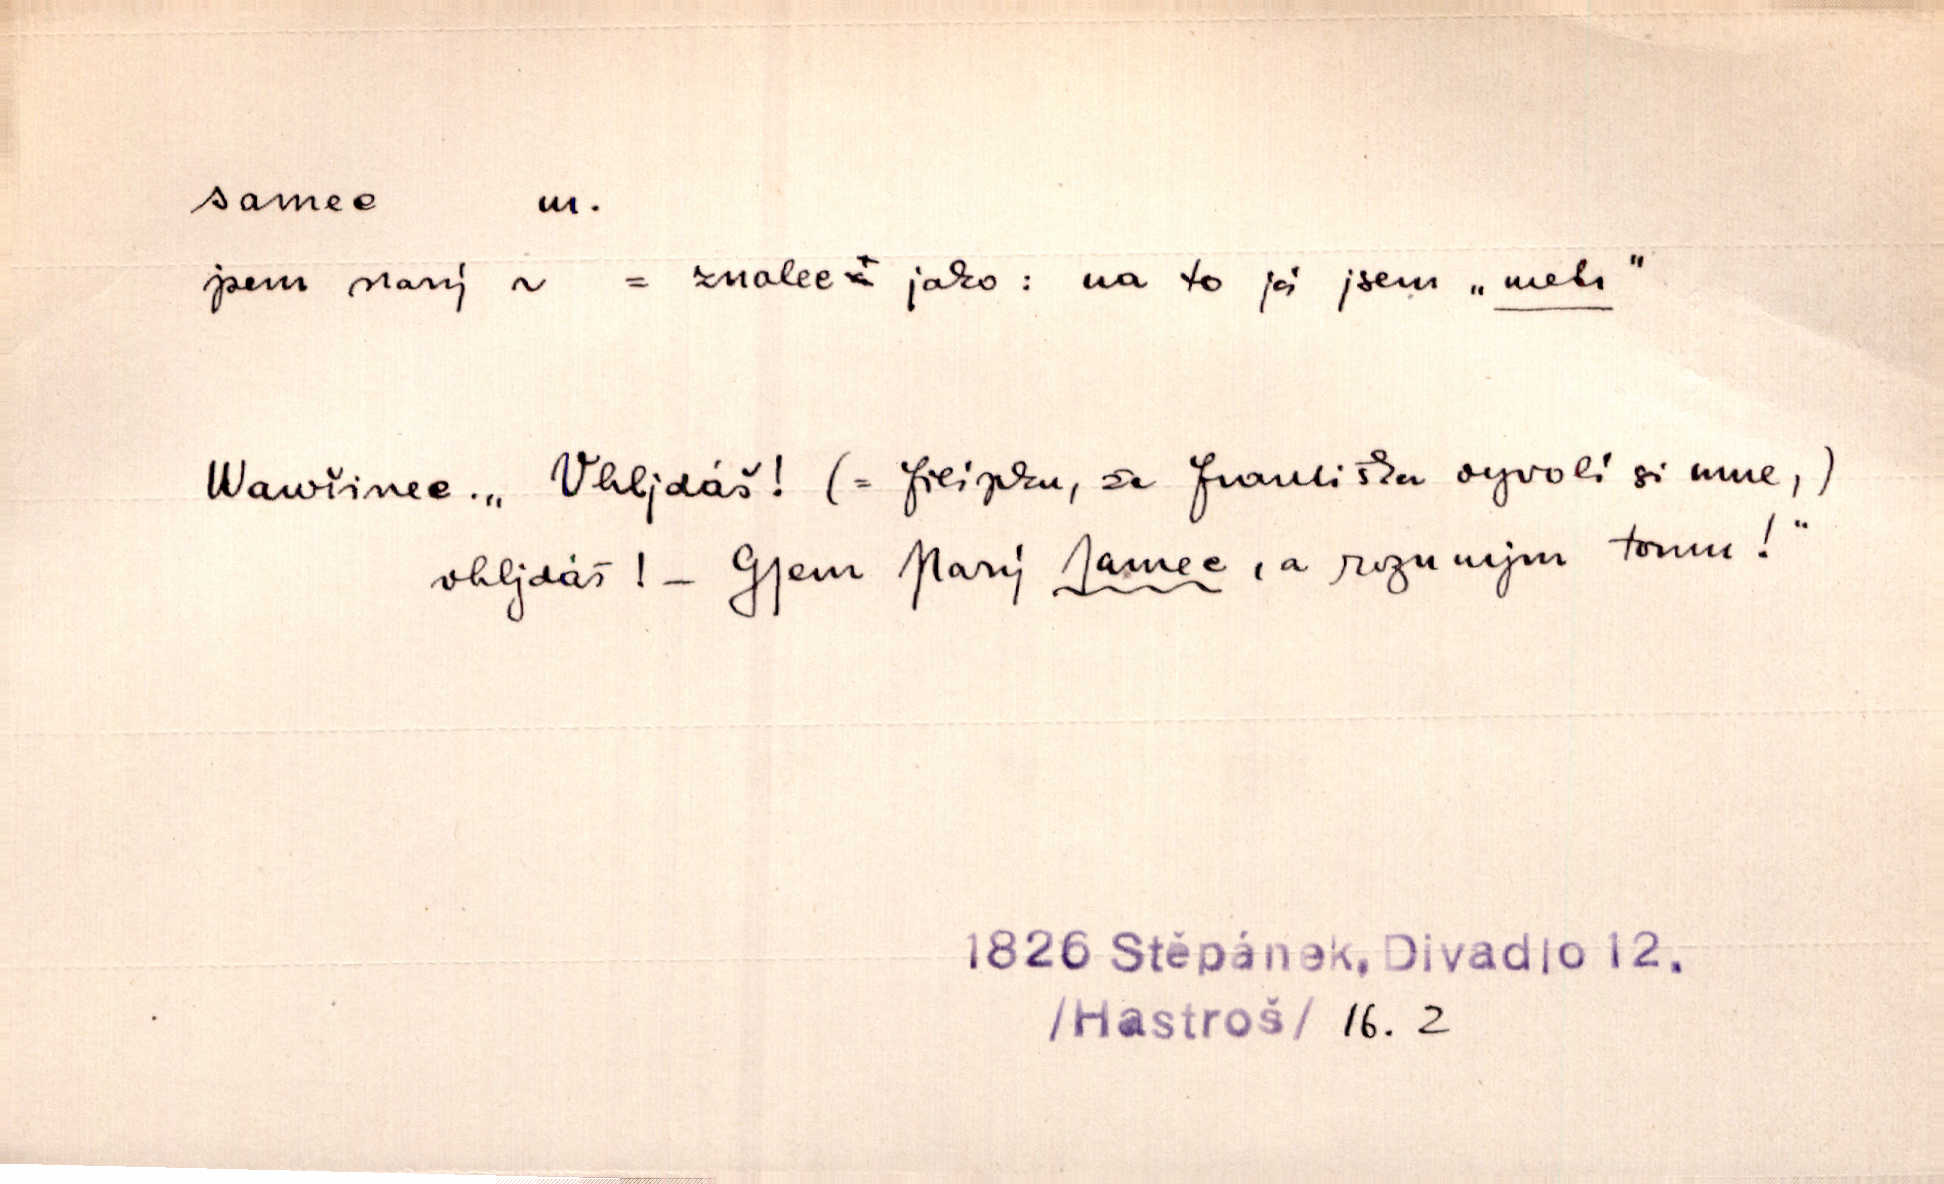 samec m.
jsem starý ~ = znalec jako: na to já jsem „metr"
Wawřinec. „Uhljdáš! (= Filipku, že Františka vyvolí si mne,)
uhljdáš! – Gsem starý samec, a rozumjm tomu!"
1826 Stěpánek, Divadlo 12.
/Hastroš/ 16. 2